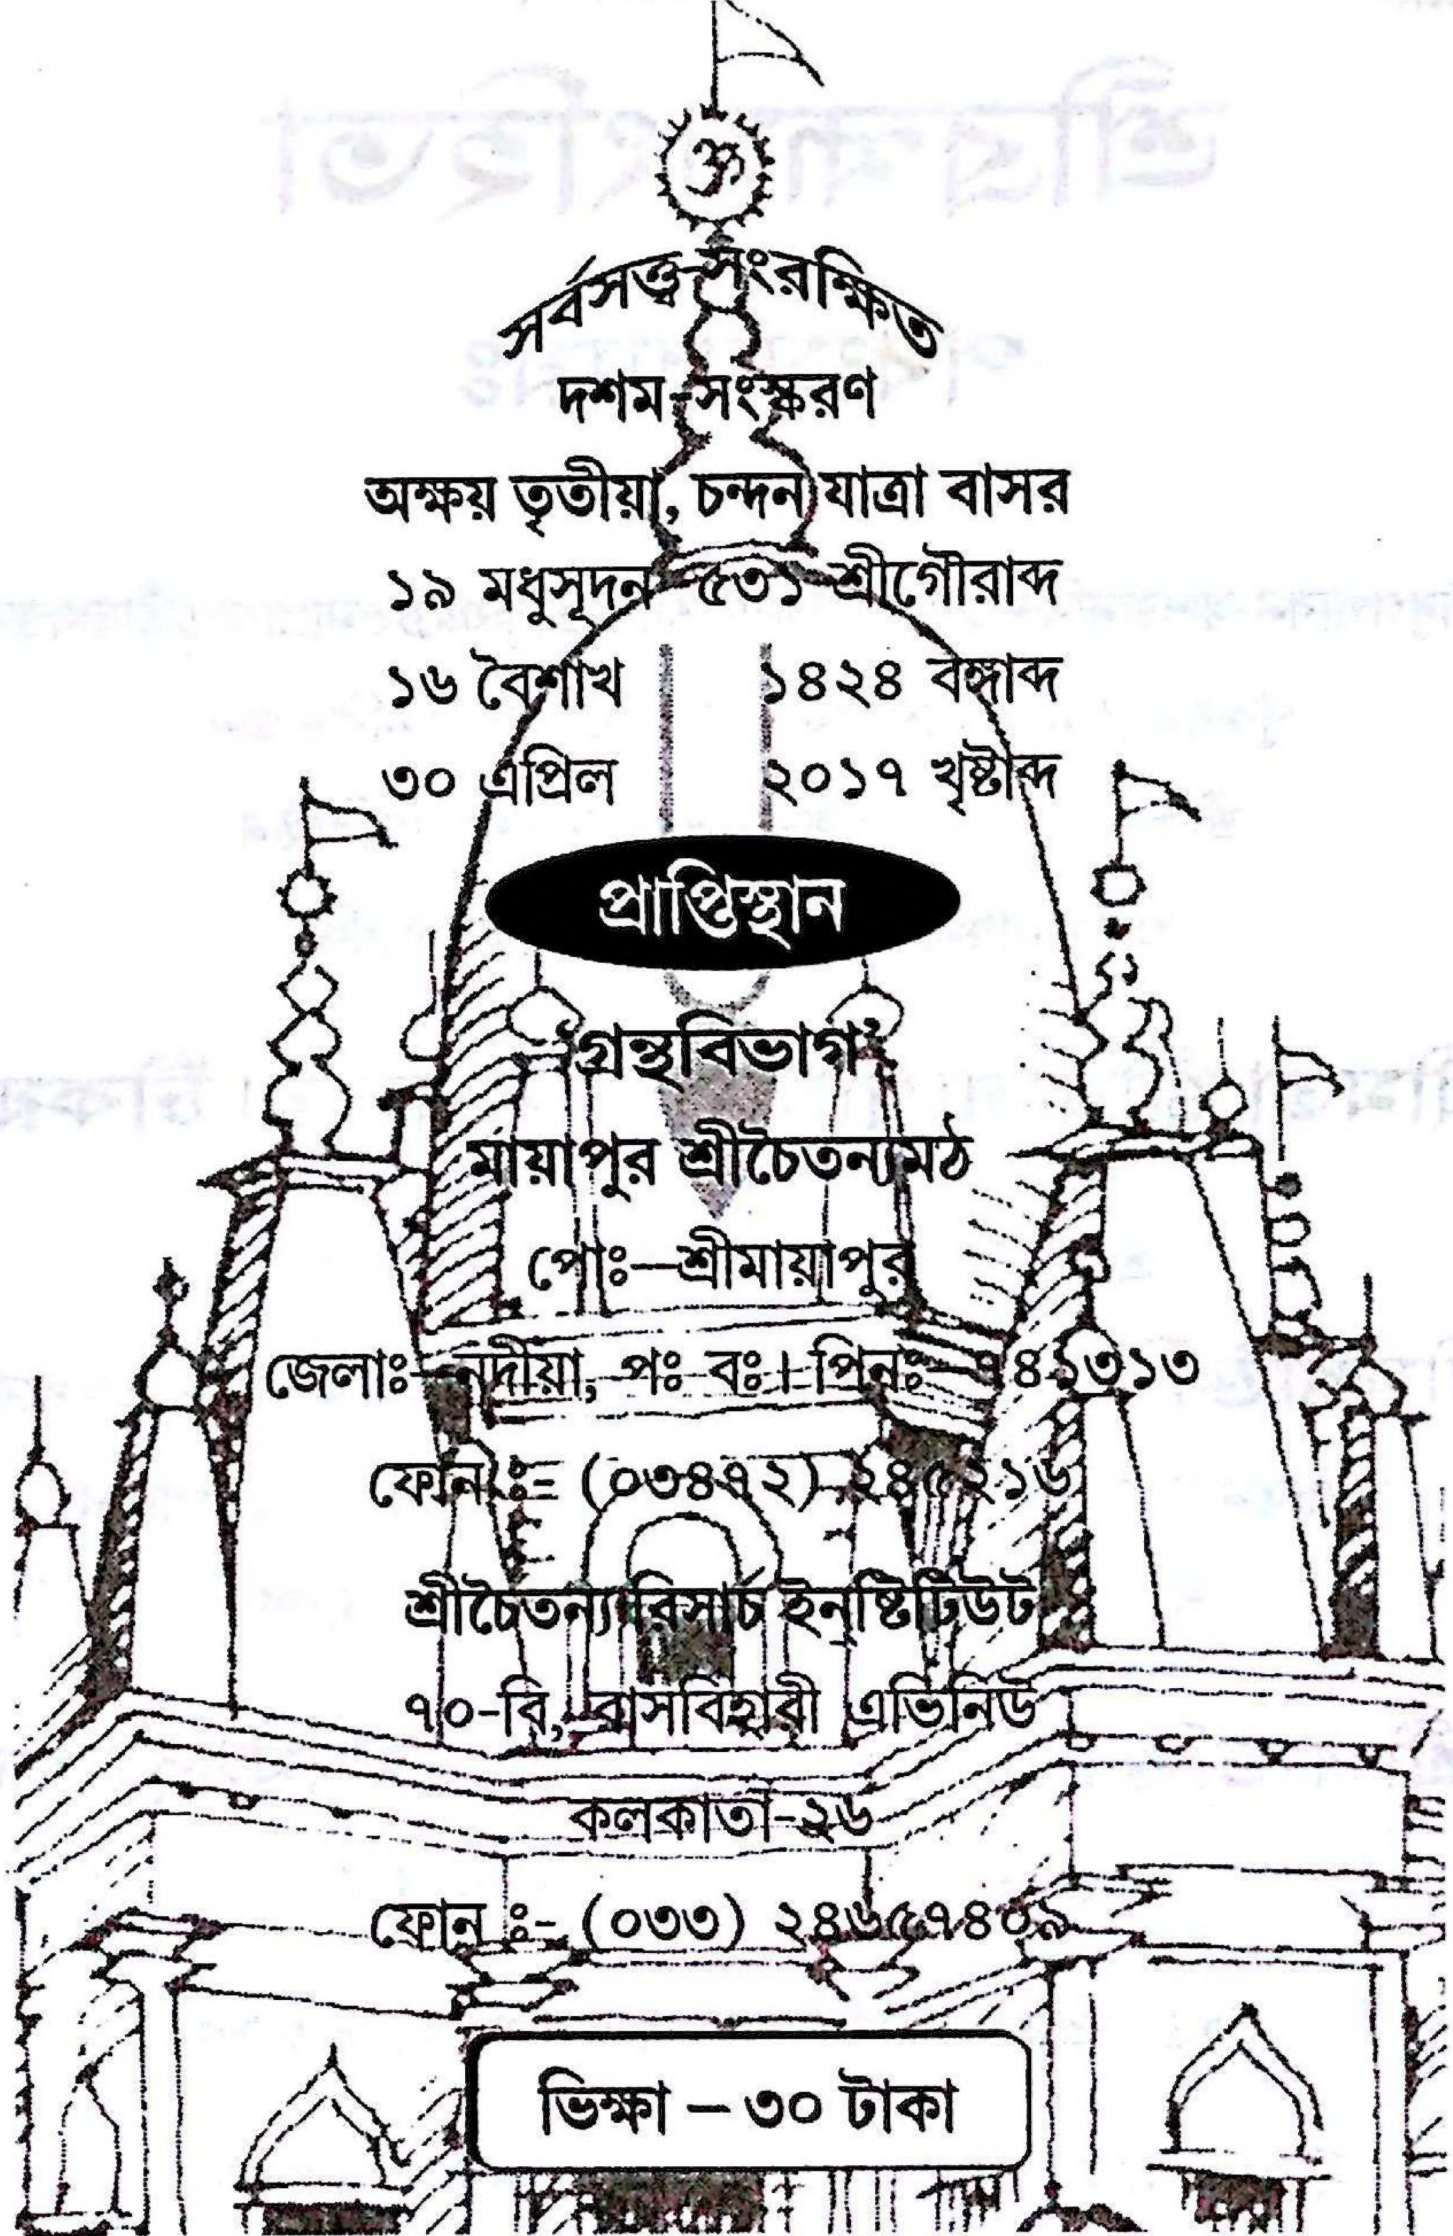 ॐ
সর্বসত্ত্ব-সংরক্ষিত
দশম-সংস্করণ
অক্ষয় তৃতীয়া, চন্দন যাত্রা বাসর
১৯ মধুসূদন ৫৩১ শ্রীগৌরাব্দ
১৬ বৈশাখ ১৪২৪ বঙ্গাব্দ
৩০ এপ্রিল ২০১৭ খৃষ্টাব্দ
প্রাপ্তিস্থান
‘গ্রন্থবিভাগ’
মায়াপুর শ্রীচৈতন্যমঠ
পোঃ—শ্রীমায়াপুর
জেলাঃ—নদীয়া, পঃ বঃ। পিনঃ—৭৪১৩১৩
ফোন ঃ- (০৩৪৭২)-২৪৫২১৬
শ্রীচৈতন্য রিসার্চ ইন্‌ষ্টিটিউট
৭০-বি, রাসবিহারী এভিনিউ
কলকাতা-২৬
ফোন ঃ- (০৩৩) ২৪৬৫৭৪০৯
ভিক্ষা – ৩০ টাকা